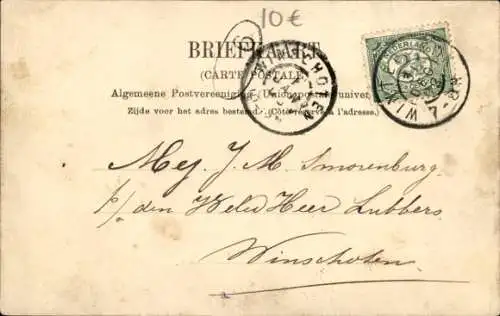 10€
BRIEFKAART
(CARTE POSTALE)
Algemeene Postvereeniging (Union postale universelle)
Zijde voor het adres bestemd. (Côté réservé à l'adresse.)
WINSCHOTEN
NEDERLAND
7-8
Mej. J. M. Smorenburg.
p/a den WelEd Heer Lubbers
Winschoten